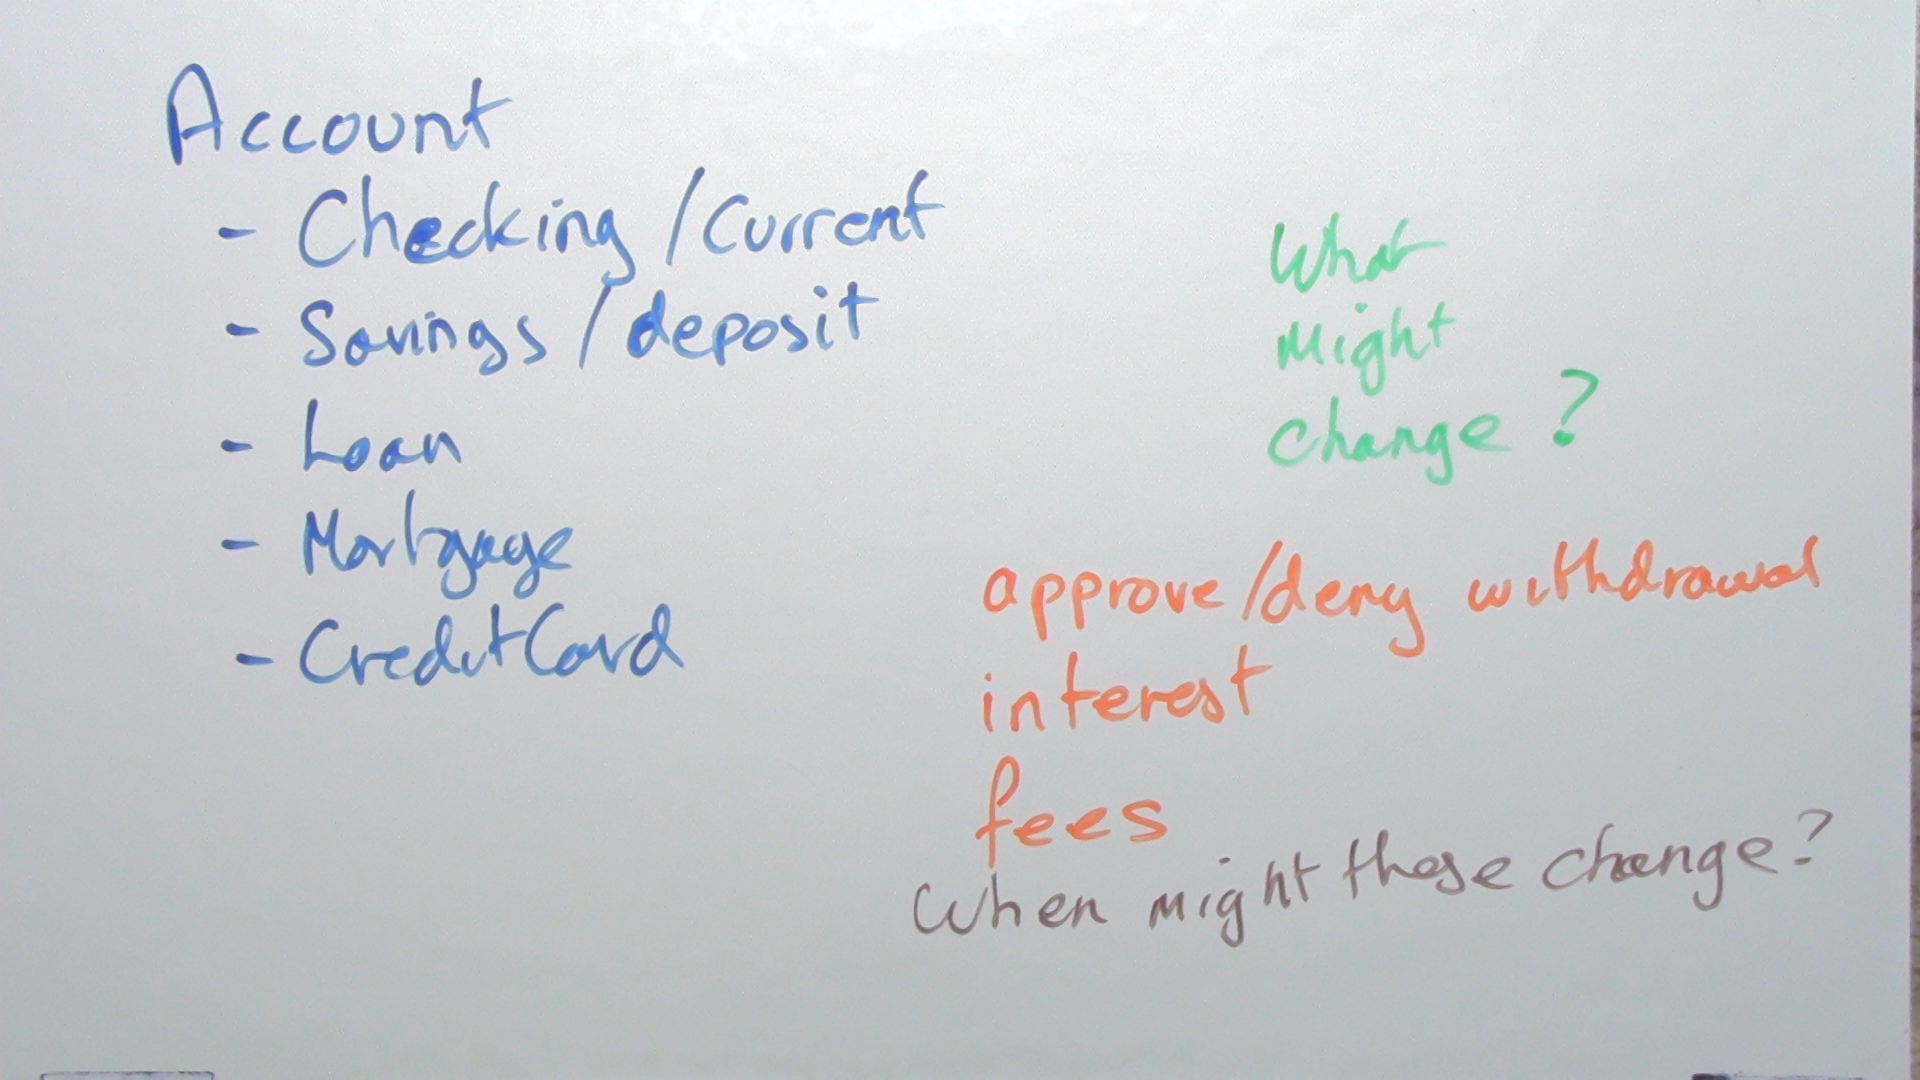 Account
- Checking / Current
- Savings / deposit
- Loan
- Mortgage
- CreditCard
What
Might
change ?
approve/deny withdrawal
interest
fees
When might these change?